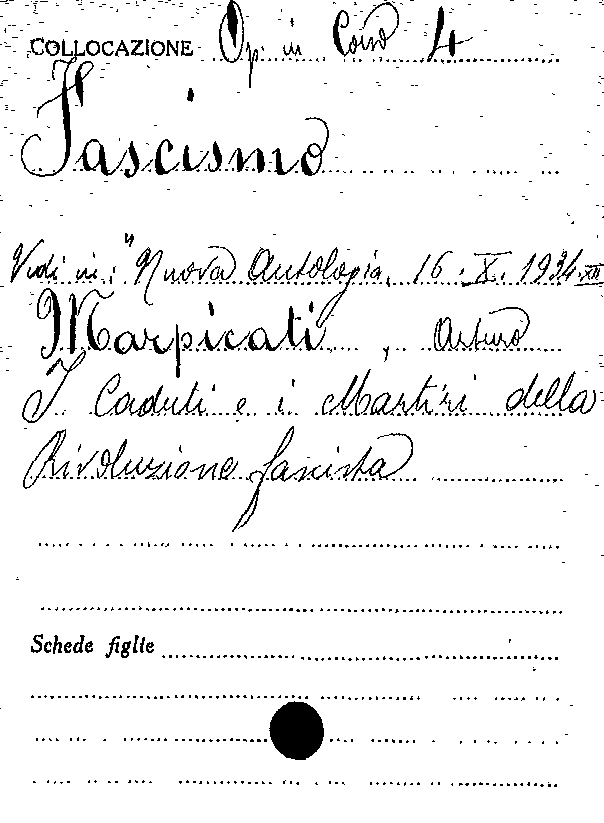 COLLOCAZIONE Op. in Corso 4
Fascismo
Vedi in: "Nuova Antologia, 16.X.1934.XII
Marpicati, Arturo
I Caduti e i Martiri della
Rivoluzione fascista
Schede figlie